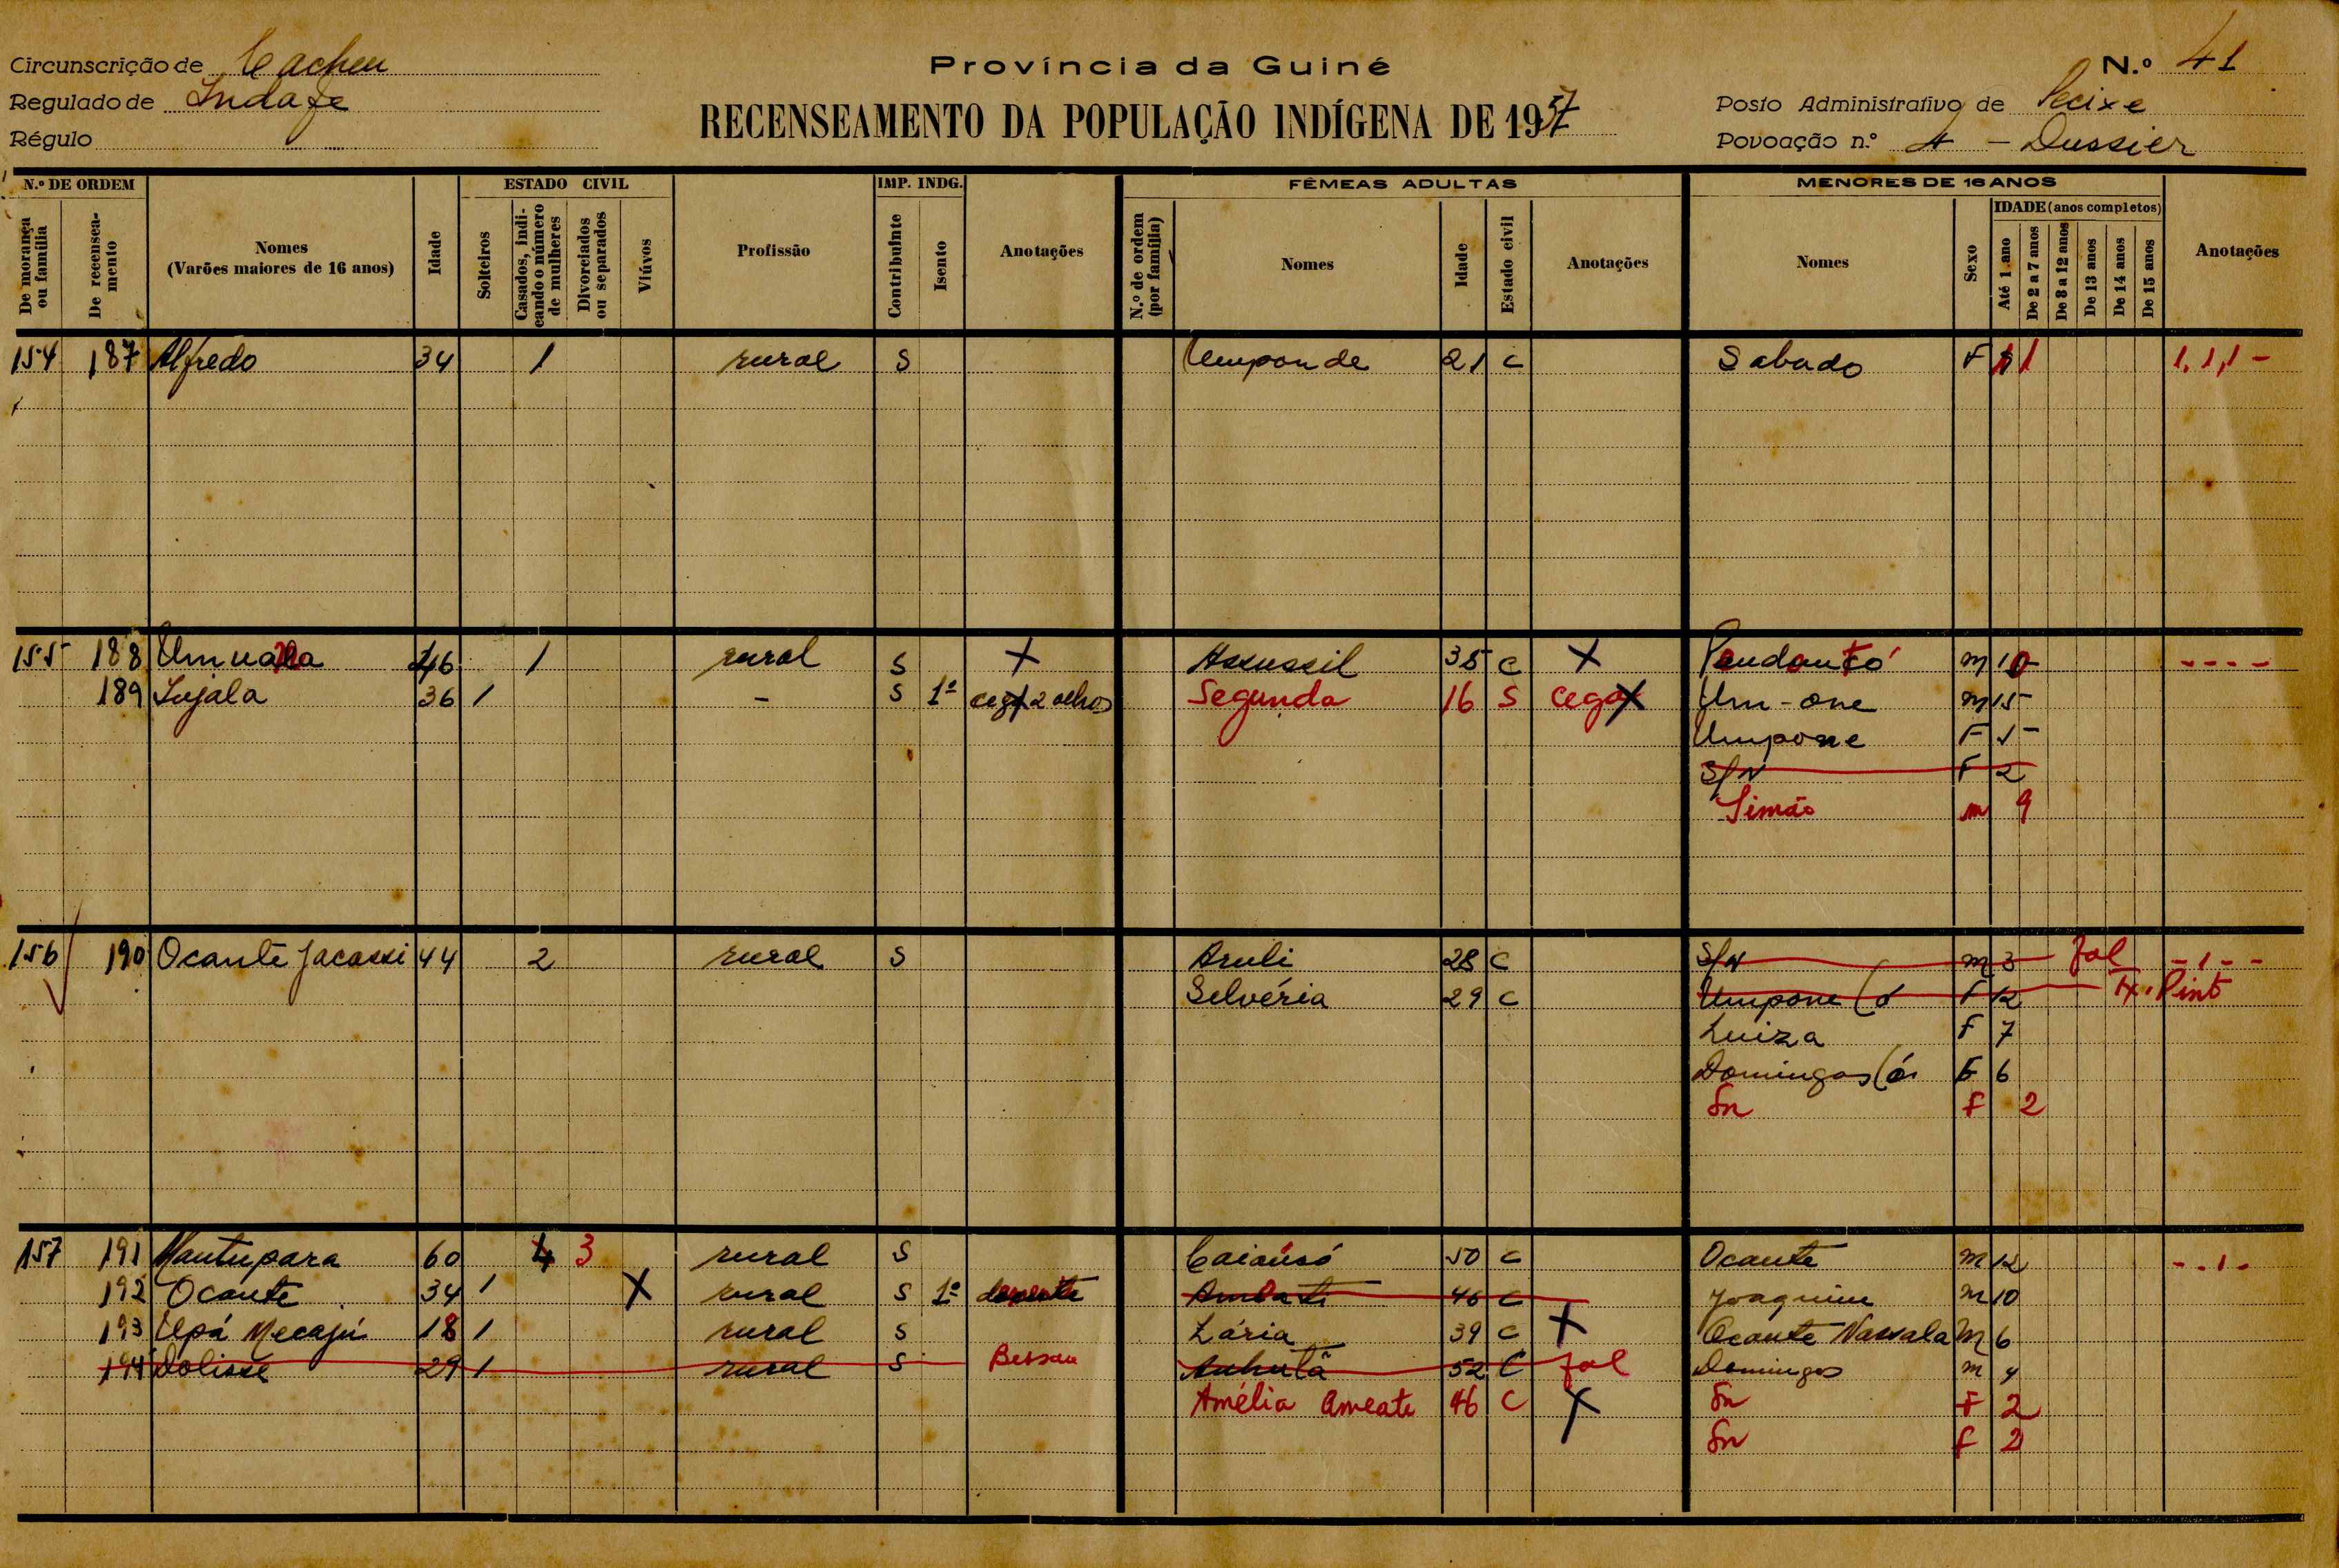 Circunscrição de Cacheu
Província da Guiné
N.º 41
Regulado de Indafe
RECENSEAMENTO DA POPULAÇÃO INDÍGENA DE 1957
Posto Administrativo de Pecixe
Régulo
Povoação n.º 4 - Dussier
N.º DE ORDEM
ESTADO CIVIL
IMP. INDG.
FÊMEAS ADULTAS
MENORES DE 16 ANOS
De morança ou família
De recenseamento
Nomes (Varões maiores de 16 anos)
Idade
Solteiros
Casados, indicando o número de mulheres
Divorciados ou separados
Viúvos
Profissão
Contribuinte
Isento
Anotações
N.º de ordem (por família)
Nomes
Idade
Estado civil
Anotações
Nomes
Sexo
IDADE (anos completos)
Até 1 ano
De 2 a 7 anos
De 8 a 12 anos
De 13 anos
De 14 anos
De 15 anos
Anotações
154 187 Alfredo 34 1 rural S Umponde 21 C Sabado F 11 1,1,1 -
155 188 46 1 rural S X Assussil 35 C X m 10 - - - -
189 Lujala 36 1 - S 1º cego 2 olhos Segunda 16 S cega X Um-one m 15
Umpone F 5
S/N F 2
Simão m 9
156 190 Ocante Jacassi 44 2 rural S Aruli 28 C S/N m 3 fal - 1 - -
Selvéria 29 C Umpone F 12 Pint
Luiza F 7
Domingas F 6
Sn F 2
157 191 Mantupara 60 4 3 rural S Caiaúsó 50 C Ocante m 12 - - 1 -
192 Ocante 34 1 X rural S 1º demente 46 C Joaquim m 10
193 Upá Mecajú 18 1 rural S Lária 39 C X Ocante Nassala m 6
194 Dolisse 29 1 rural S Bissau Anhutã 52 C fal Domingos m 4
Amélia Ameate 46 C X Sn F 2
Sn F 2